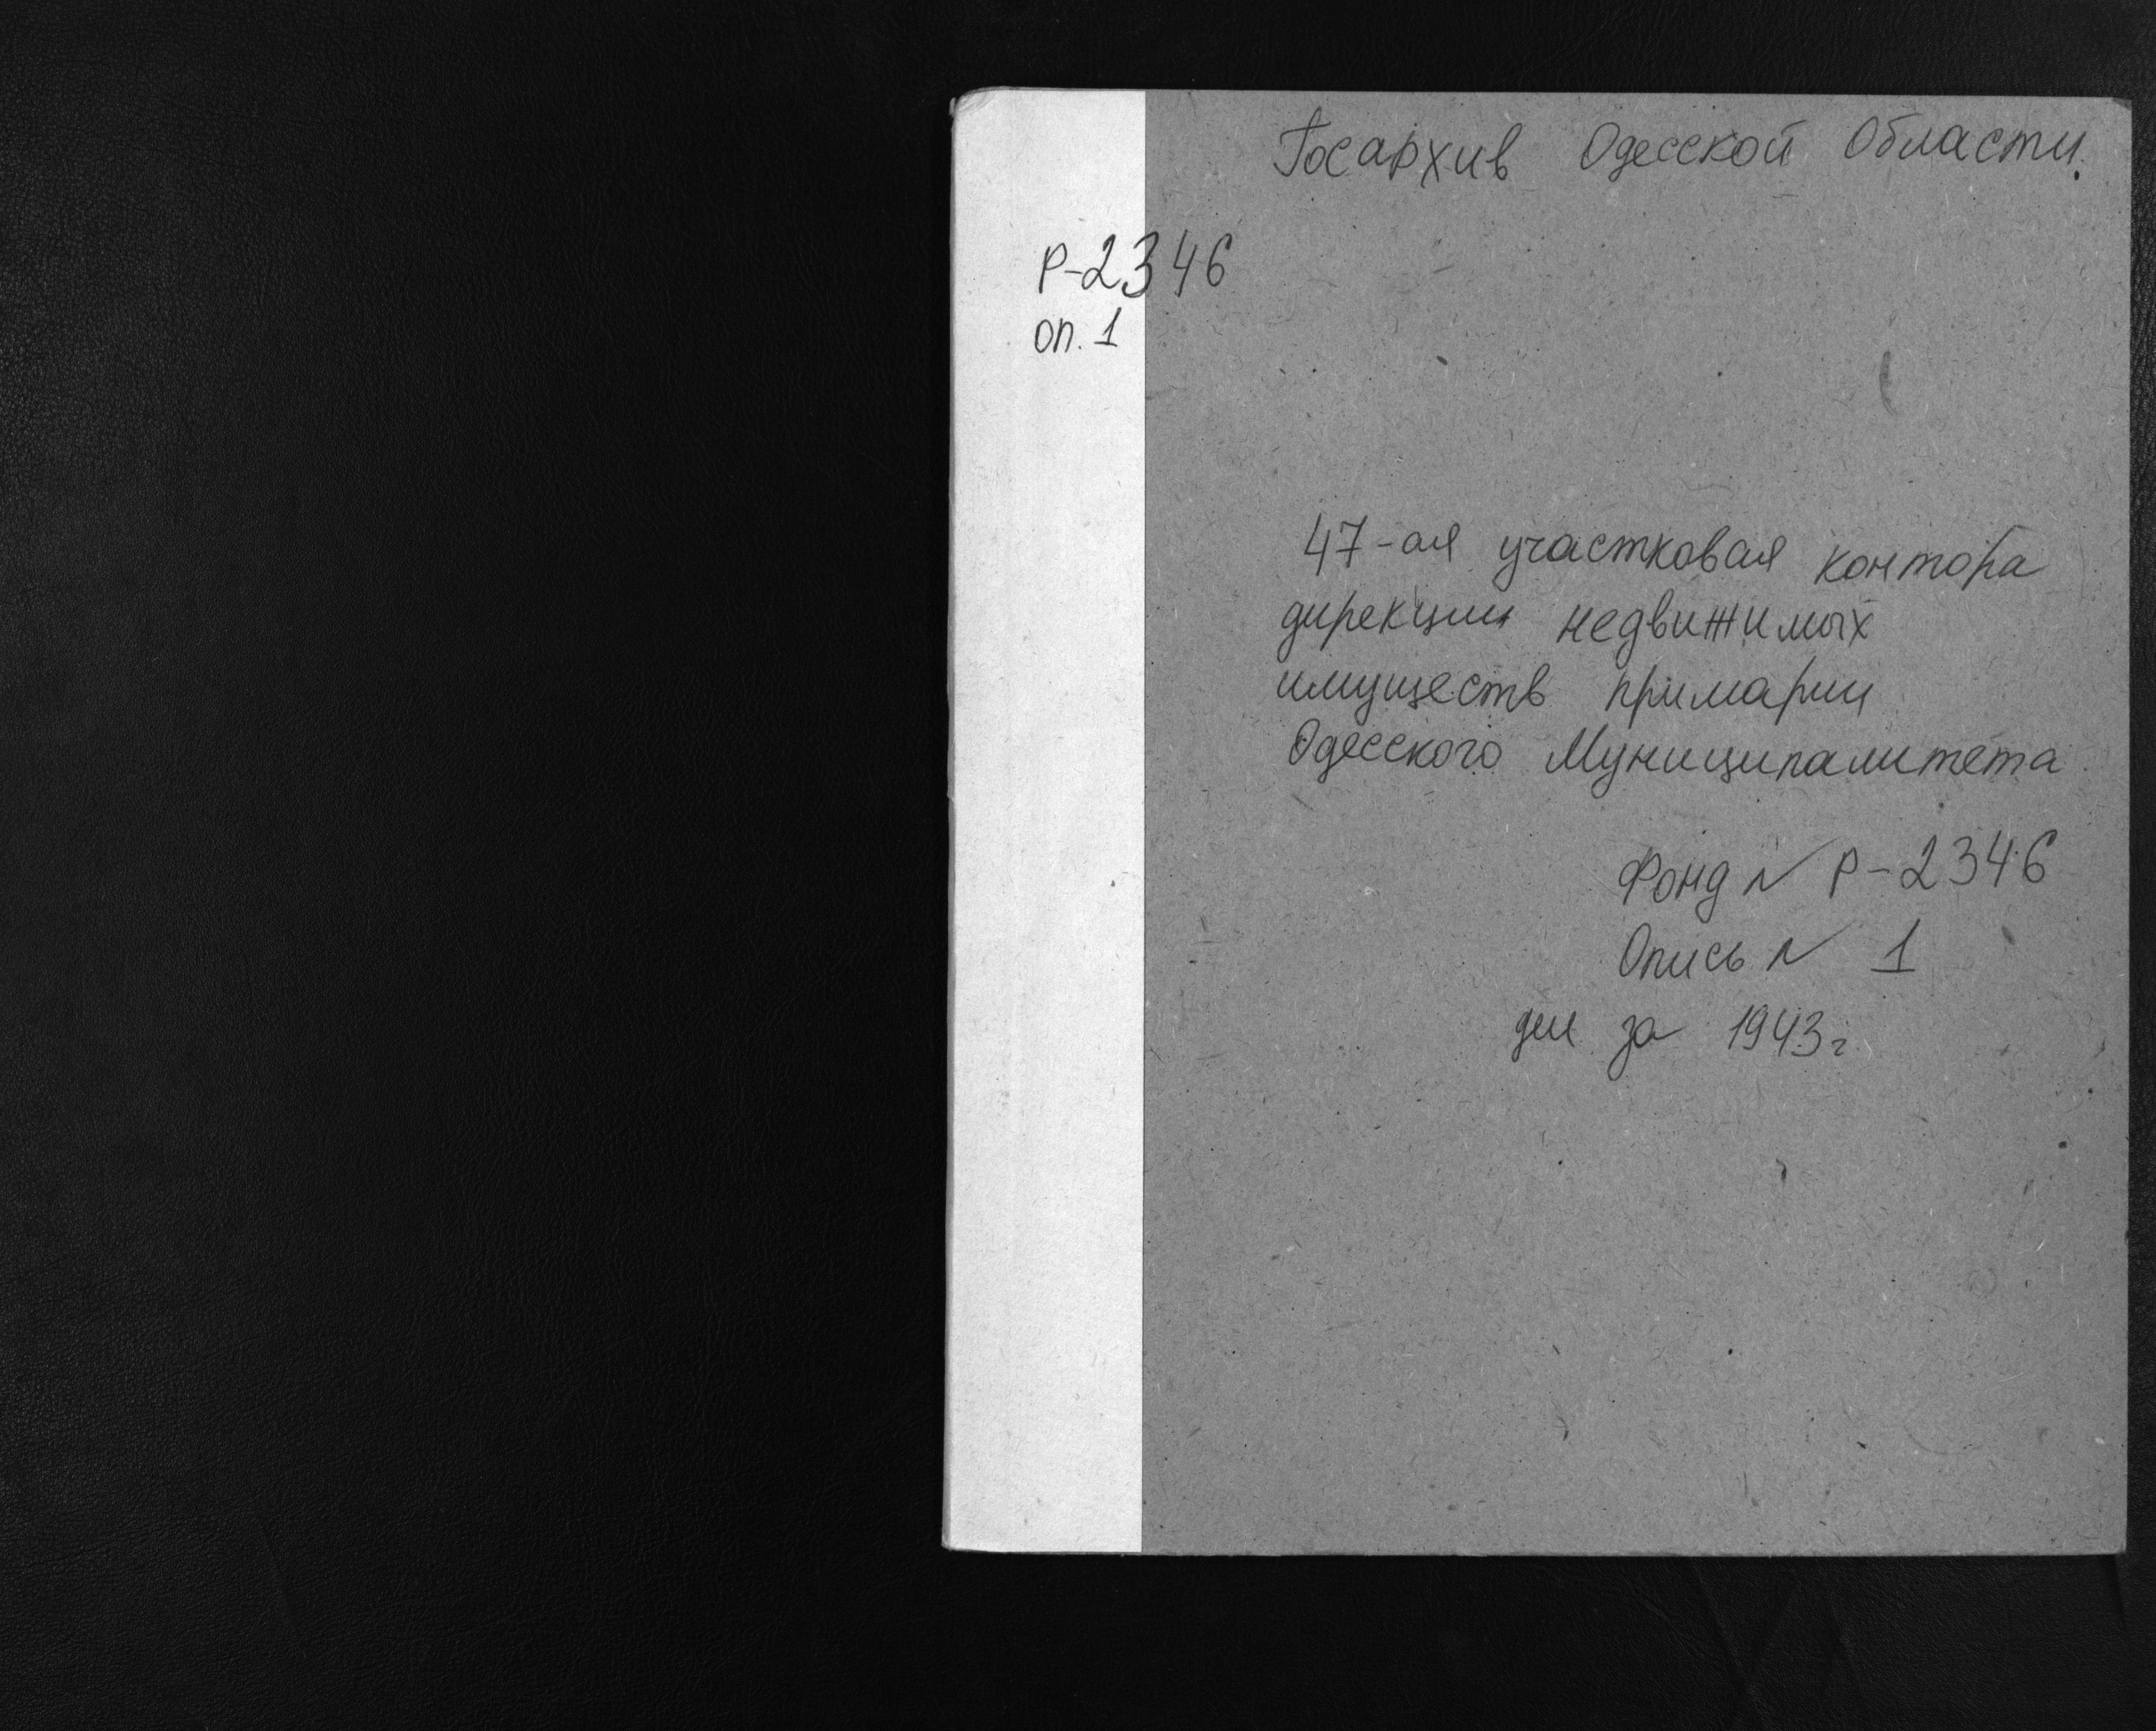 Госархив Одесской Области.
Р-2346
оп. 1
47-ая участковая контора
дирекции недвижимых
имуществ примарии
Одесского Муниципалитета
Фонд № Р-2346
Опись № 1
дел за 1943 г